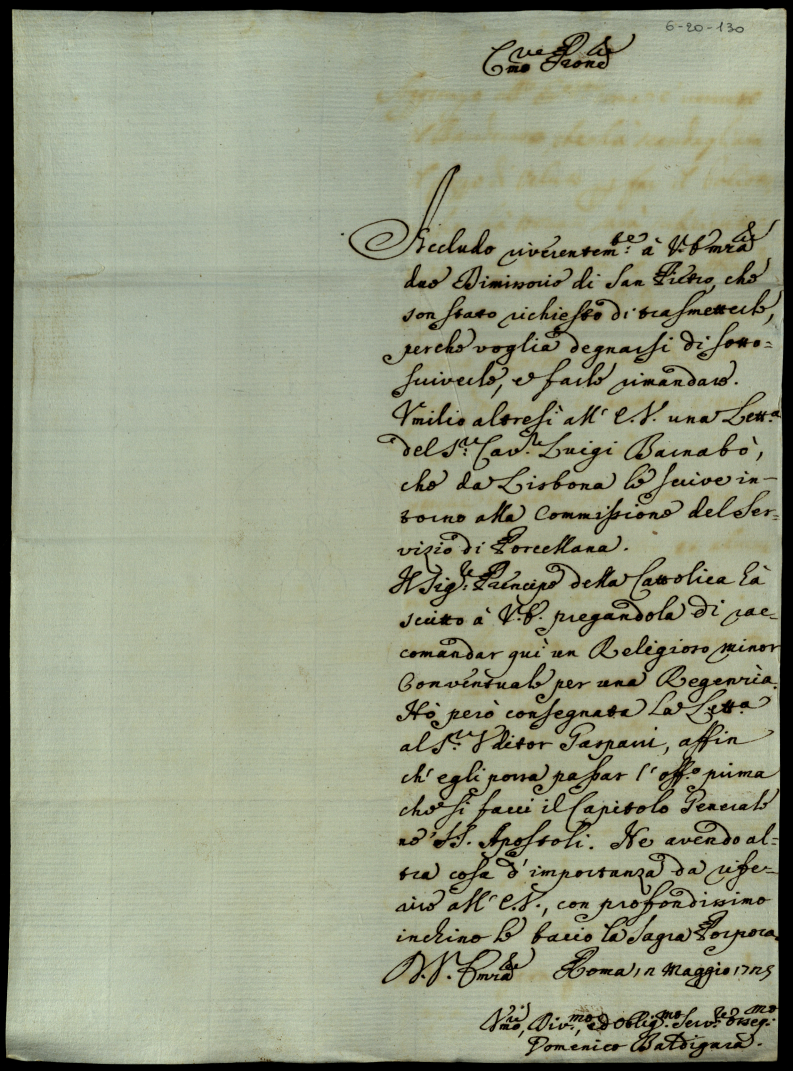 6-20-130
E.mo e Rev.e P.ne
Accludo riverentem.te à V. Em.za
due Dimissorie di San Pietro, che
son stato richiesto di trasmetterle,
perche voglia degnarsi di sotto=
scriverle, e farle rimandare.
Umilio altresì all' E.V. una Lett.a
del S.r Cav.re Luigi Barnabò,
che da Lisbona le scrive in-
torno alla Commissione del Ser-
vizio di Porcellana.
Il Sig.re Prencipe della Cattolica hà
scritto à V.E. pregandola di rac-
comandar qui un Religioso minor
Conventuale per una Regenzia.
Hò però consegnata la Lett.a
al S.r Uditor Gaspari, affin
ch' egli possa passar l'off.o prima
che si facci il Capitolo Generale
ne' SS. Apostoli. Ne avendo al=
tra cosa d'importanza da rife-
rire all' E.V., con profondissimo
inchino le baccio la Sagra Porpora.
D. V. Em.za Roma, 12 Maggio 1725
Um.mo, Div.mo, ed Oblig.mo Serv.re osseq.mo
Domenico Baldigiara.